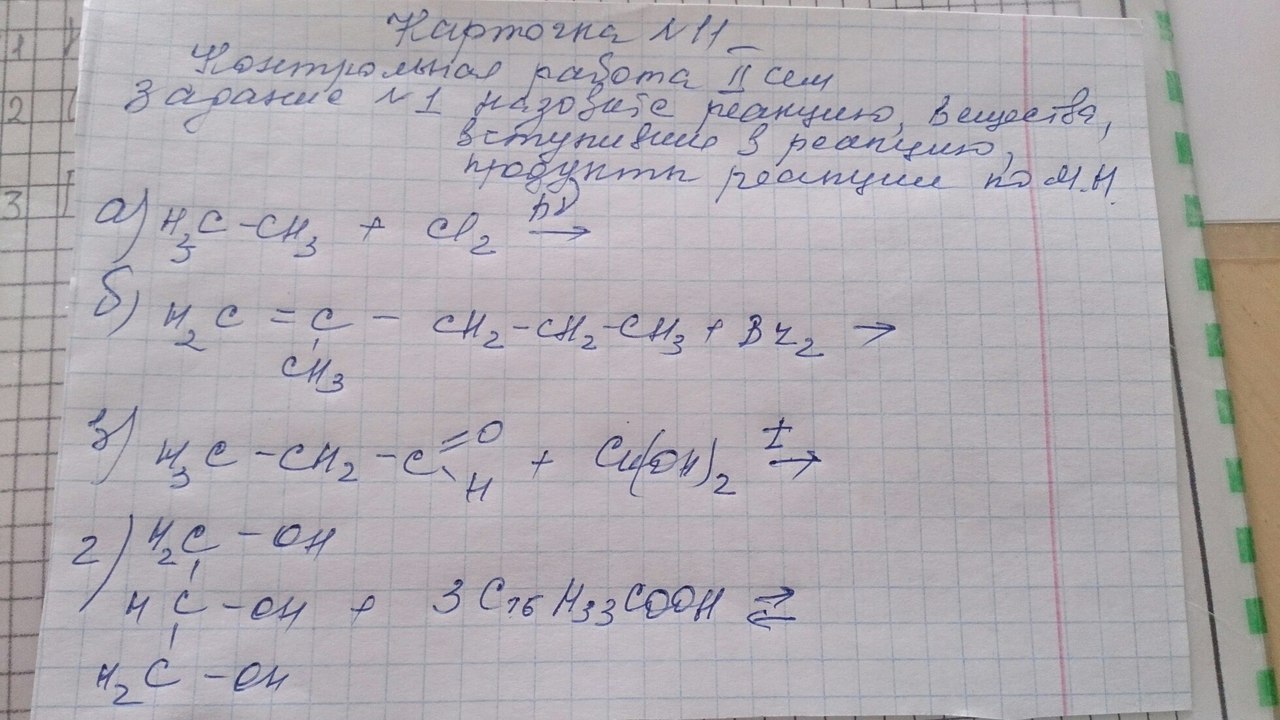 1
2
3
Карточка №11
Контрольная работа II сем
Задание №1 назовите реакцию, вещества,
вступившие в реакцию,
продукты реакции по М.Н.
а) H₃C - CH₃ + Cl₂ hν →
б) H₂C = C - CH₂ - CH₂ - CH₃ + Br₂ →
CH₃
в) H₃C - CH₂ - C =O H + Cu(OH)₂ t →
г) H₂C - OH
HC - OH + 3 C₁₆H₃₃COOH ⇄
H₂C - OH